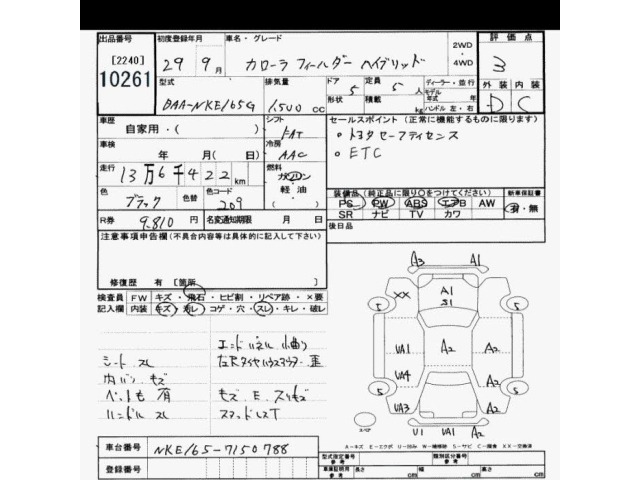 出品番号 初度登録年月 車名・グレード 2WD・4WD 評価点
[2240] 29年 9月 カローラ フィールダー ハイブリッド 3
10261 型式 排気量 ドア 5 定員 5人 ディーラー・並行 外装 内装
DAA-NKE165G 1.500cc 形状 積載 kg モデル年式 年 ハンドル 左・右 D C
車歴 シフト セールスポイント (正常に機能するものに限ります)
自家用・( ) FAT ・トヨタセーフティセンス
車検 冷房 ・ETC
年 月( 日) AAC
走行 燃料
13万6千422km ガソリン
軽油
( )
色 色替 色コード 装備品(純正品に限り○をつけてください) 新車保証書
ブラック 209 PS PW ABS エアB AW 有・無
R券 9.810円 名変通知期限 月 日 SR ナビ TV カワ
注意事項申告欄(不具合内容等は具体的に記入して下さい) 後日品
修復歴 有[箇所 ]
検査員 FW キズ・飛石・ヒビ割・リペア跡・×要
記入欄 内装 キズ・汚レ・コゲ・穴・スレ・キレ・破レ
シート スレ
内バン キズ
ペット毛 有
ハンドル スレ
エンドパネル 小曲り
キズ.E.スリキズ
スタッドレスT
A3 A1
XX A1 S1
5 5
UA1 A2 A2
UA4
5 A2 A2 5
UA3 A2
スペア U1 UA1 A2
A-キズ E-エクボ U-凹み W-補修跡 S-サビ C-腐食 XX-交換済
車台番号 NKE165-7150788
登録番号
型式指定番号 参考 類別区分番号 参考
車庫証明用 参考 長さ cm 幅 cm 高さ cm